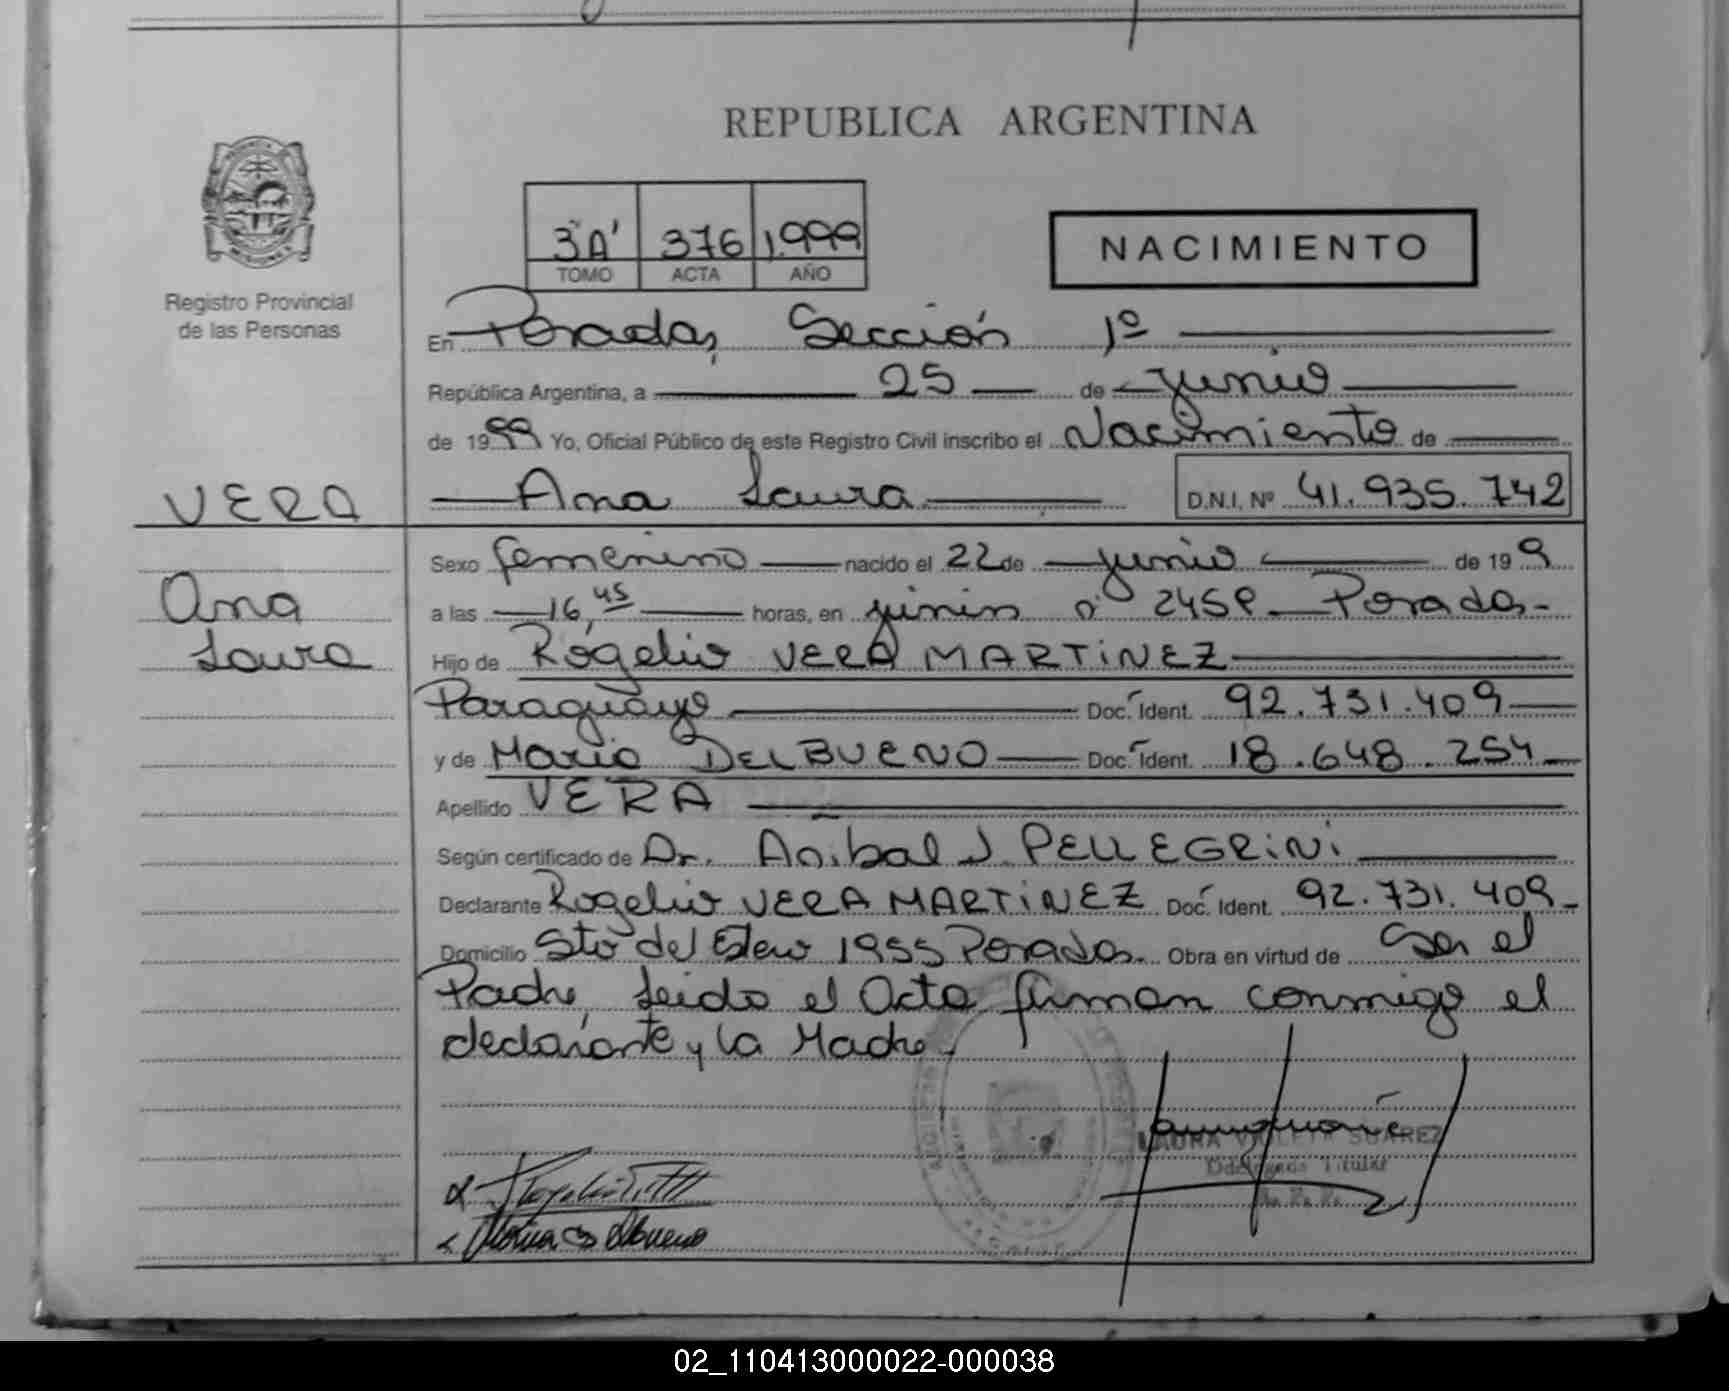 REPUBLICA ARGENTINA
3"A" 376 1.999
TOMO ACTA AÑO
NACIMIENTO
Registro Provincial
de las Personas
En Posadas, Sección 1º
República Argentina, a 25 de junio
de 1999 Yo, Oficial Público de este Registro Civil inscribo el Nacimiento de
VERA
Ana Laura D.N.I. Nº 41.935.742
Ana
Laura
Sexo femenino nacido el 22 de junio de 199
a las 16,45 horas, en junin nº 2458 Posadas
Hijo de Rogelio VERA MARTINEZ
Paraguayo Doc. Ident. 92.731.409
y de Maria DELBUENO Doc. Ident. 18.648.254
Apellido VERA
Según certificado de Dr. Anibal J. PELLEGRINI
Declarante Rogelio VERA MARTINEZ Doc. Ident. 92.731.409
Domicilio Sto del Estero 1955 Posadas. Obra en virtud de Ser el
Padre, Leida el Acta firman conmigo el
declarante y la Madre.
LAURA VIOLETA SUAREZ
Titular
02_110413000022-000038